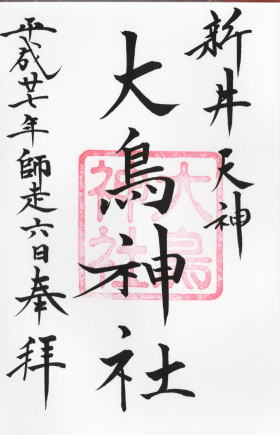 新井天神
大鳥神社
大鳥神社
平成廿七年師走六日奉拝